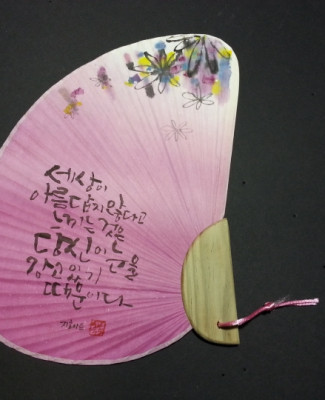 세상이
아름답지 않다고
느끼는 것은
당신이 눈을
감고 있기
때문이다